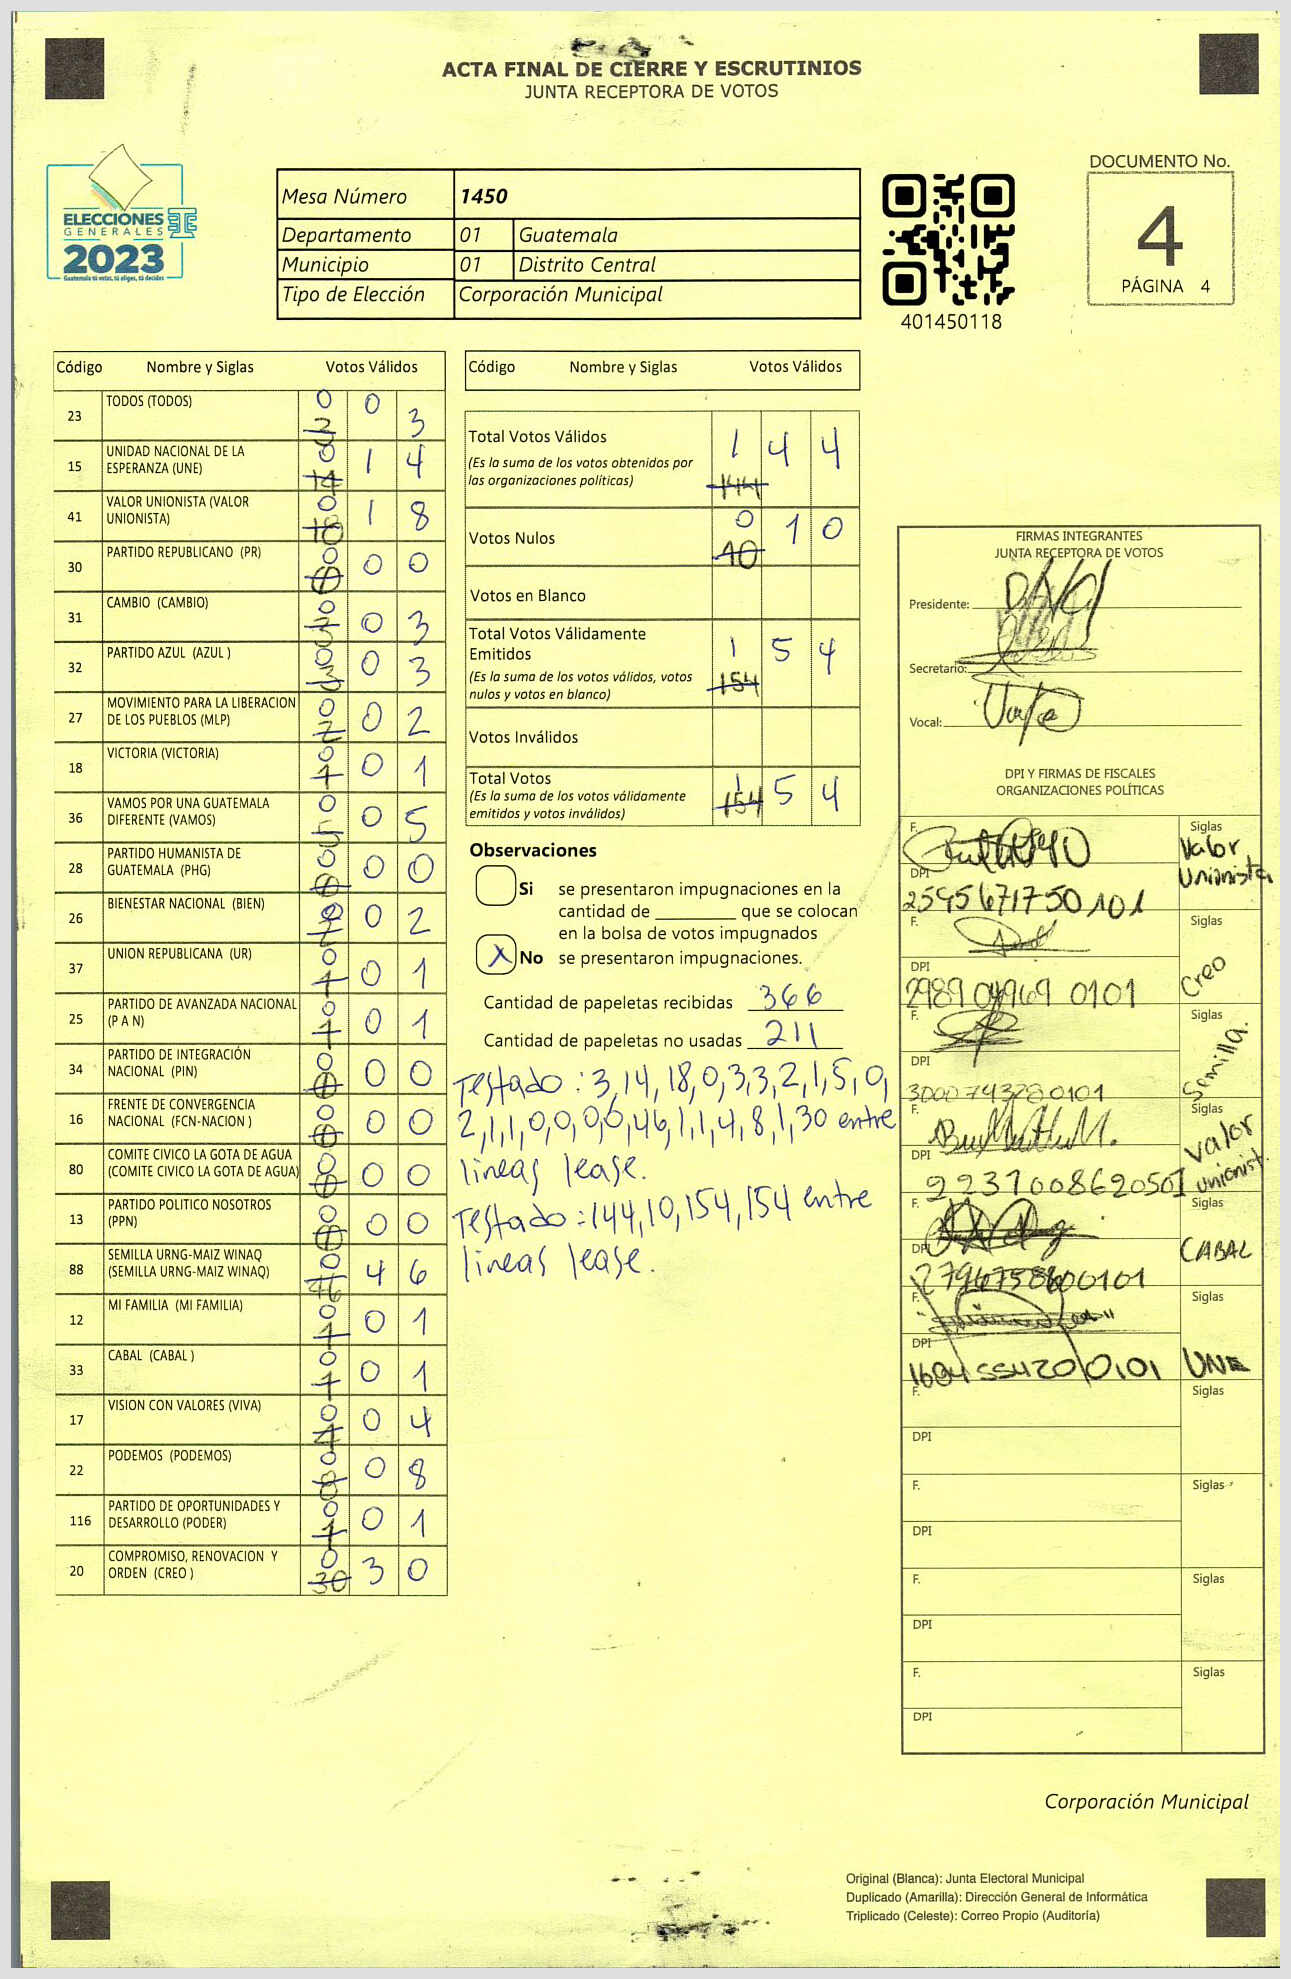 ACTA FINAL DE CIERRE Y ESCRUTINIOS
JUNTA RECEPTORA DE VOTOS
ELECCIONES
GENERALES
2023
Guatemala tú votas, tú eliges, tú decides
Mesa Número 1450
Departamento 01 Guatemala
Municipio 01 Distrito Central
Tipo de Elección Corporación Municipal
401450118
DOCUMENTO No.
4
PÁGINA 4
Código Nombre y Siglas Votos Válidos
23 TODOS (TODOS) 0 0 3
15 UNIDAD NACIONAL DE LA ESPERANZA (UNE) 0 1 4
41 VALOR UNIONISTA (VALOR UNIONISTA) 0 1 8
30 PARTIDO REPUBLICANO (PR) 0 0 0
31 CAMBIO (CAMBIO) 0 0 3
32 PARTIDO AZUL (AZUL ) 0 0 3
27 MOVIMIENTO PARA LA LIBERACION DE LOS PUEBLOS (MLP) 0 0 2
18 VICTORIA (VICTORIA) 0 0 1
36 VAMOS POR UNA GUATEMALA DIFERENTE (VAMOS) 0 0 5
28 PARTIDO HUMANISTA DE GUATEMALA (PHG) 0 0 0
26 BIENESTAR NACIONAL (BIEN) 0 0 2
37 UNION REPUBLICANA (UR) 0 0 1
25 PARTIDO DE AVANZADA NACIONAL (P A N) 0 0 1
34 PARTIDO DE INTEGRACIÓN NACIONAL (PIN) 0 0 0
16 FRENTE DE CONVERGENCIA NACIONAL (FCN-NACION ) 0 0 0
80 COMITE CIVICO LA GOTA DE AGUA (COMITE CIVICO LA GOTA DE AGUA) 0 0 0
13 PARTIDO POLITICO NOSOTROS (PPN) 0 0 0
88 SEMILLA URNG-MAIZ WINAQ (SEMILLA URNG-MAIZ WINAQ) 0 4 6
12 MI FAMILIA (MI FAMILIA) 0 0 1
33 CABAL (CABAL ) 0 0 1
17 VISION CON VALORES (VIVA) 0 0 4
22 PODEMOS (PODEMOS) 0 0 8
116 PARTIDO DE OPORTUNIDADES Y DESARROLLO (PODER) 0 0 1
20 COMPROMISO, RENOVACION Y ORDEN (CREO ) 0 3 0
Código Nombre y Siglas Votos Válidos
Total Votos Válidos 1 4 4
(Es la suma de los votos obtenidos por
las organizaciones políticas) 144
Votos Nulos 0 1 0
10
Votos en Blanco
Total Votos Válidamente
Emitidos 1 5 4
(Es la suma de los votos válidos, votos
nulos y votos en blanco) 154
Votos Inválidos
Total Votos 1 5 4
(Es la suma de los votos válidamente
emitidos y votos inválidos) 154
Observaciones
Si se presentaron impugnaciones en la
cantidad de ________ que se colocan
en la bolsa de votos impugnados
X No se presentaron impugnaciones.
Cantidad de papeletas recibidas 366
Cantidad de papeletas no usadas 211
Testado: 3,14,18,0,3,3,2,1,5,0,
2,1,1,0,0,0,0,46,1,1,4,8,1,30 entre
lineas lease.
Testado: 144,10,154,154 entre
lineas lease.
FIRMAS INTEGRANTES
JUNTA RECEPTORA DE VOTOS
Presidente:
Secretario:
Vocal:
DPI Y FIRMAS DE FISCALES
ORGANIZACIONES POLÍTICAS
F. Siglas Valor Unionista
DPI 2595671750101
F. Siglas Creo
DPI 2989049690101
F. Siglas Semilla.
DPI 3000743280101
F. Siglas Valor unionist.
DPI 2237008620501
F. Siglas CABAL
DPI
F. Siglas UNE
DPI
F. Siglas
DPI
F. Siglas
DPI
F. Siglas
DPI
F. Siglas
DPI
Corporación Municipal
Original (Blanca): Junta Electoral Municipal
Duplicado (Amarilla): Dirección General de Informática
Triplicado (Celeste): Correo Propio (Auditoría)